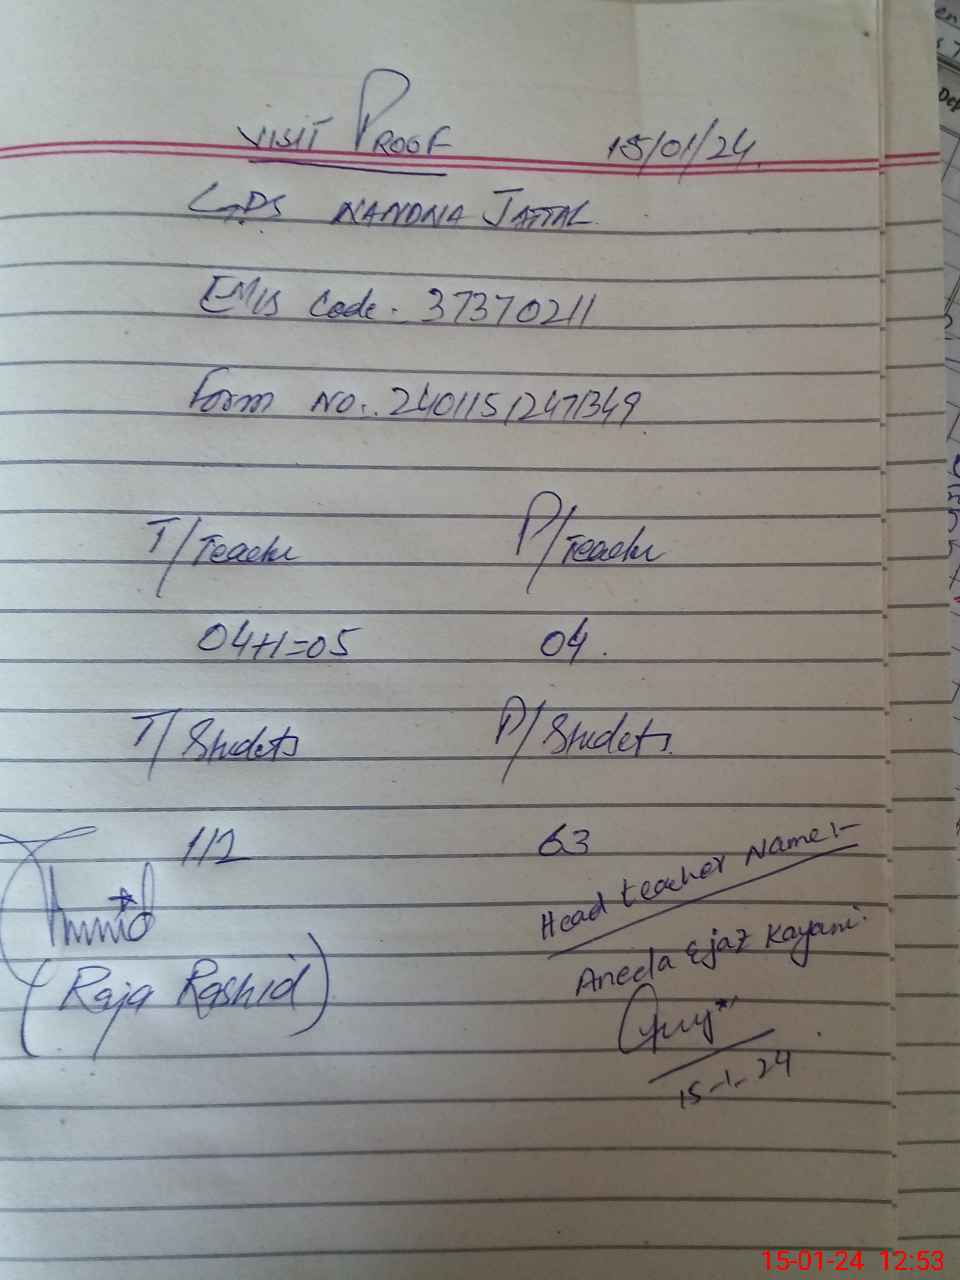 VISIT PROOF 15/01/24.
GPS NANDNA JATTAL.
EMIS Code:- 37370211
Form NO:. 24011512471349
T/Teache P/Teache
04+1=05 04.
T/Studets P/Studets.
112 63
(Raja Rashid)
Head teacher Name:-
Aneela Ejaz Kayani.
15-1-24
15-01-24 12:53